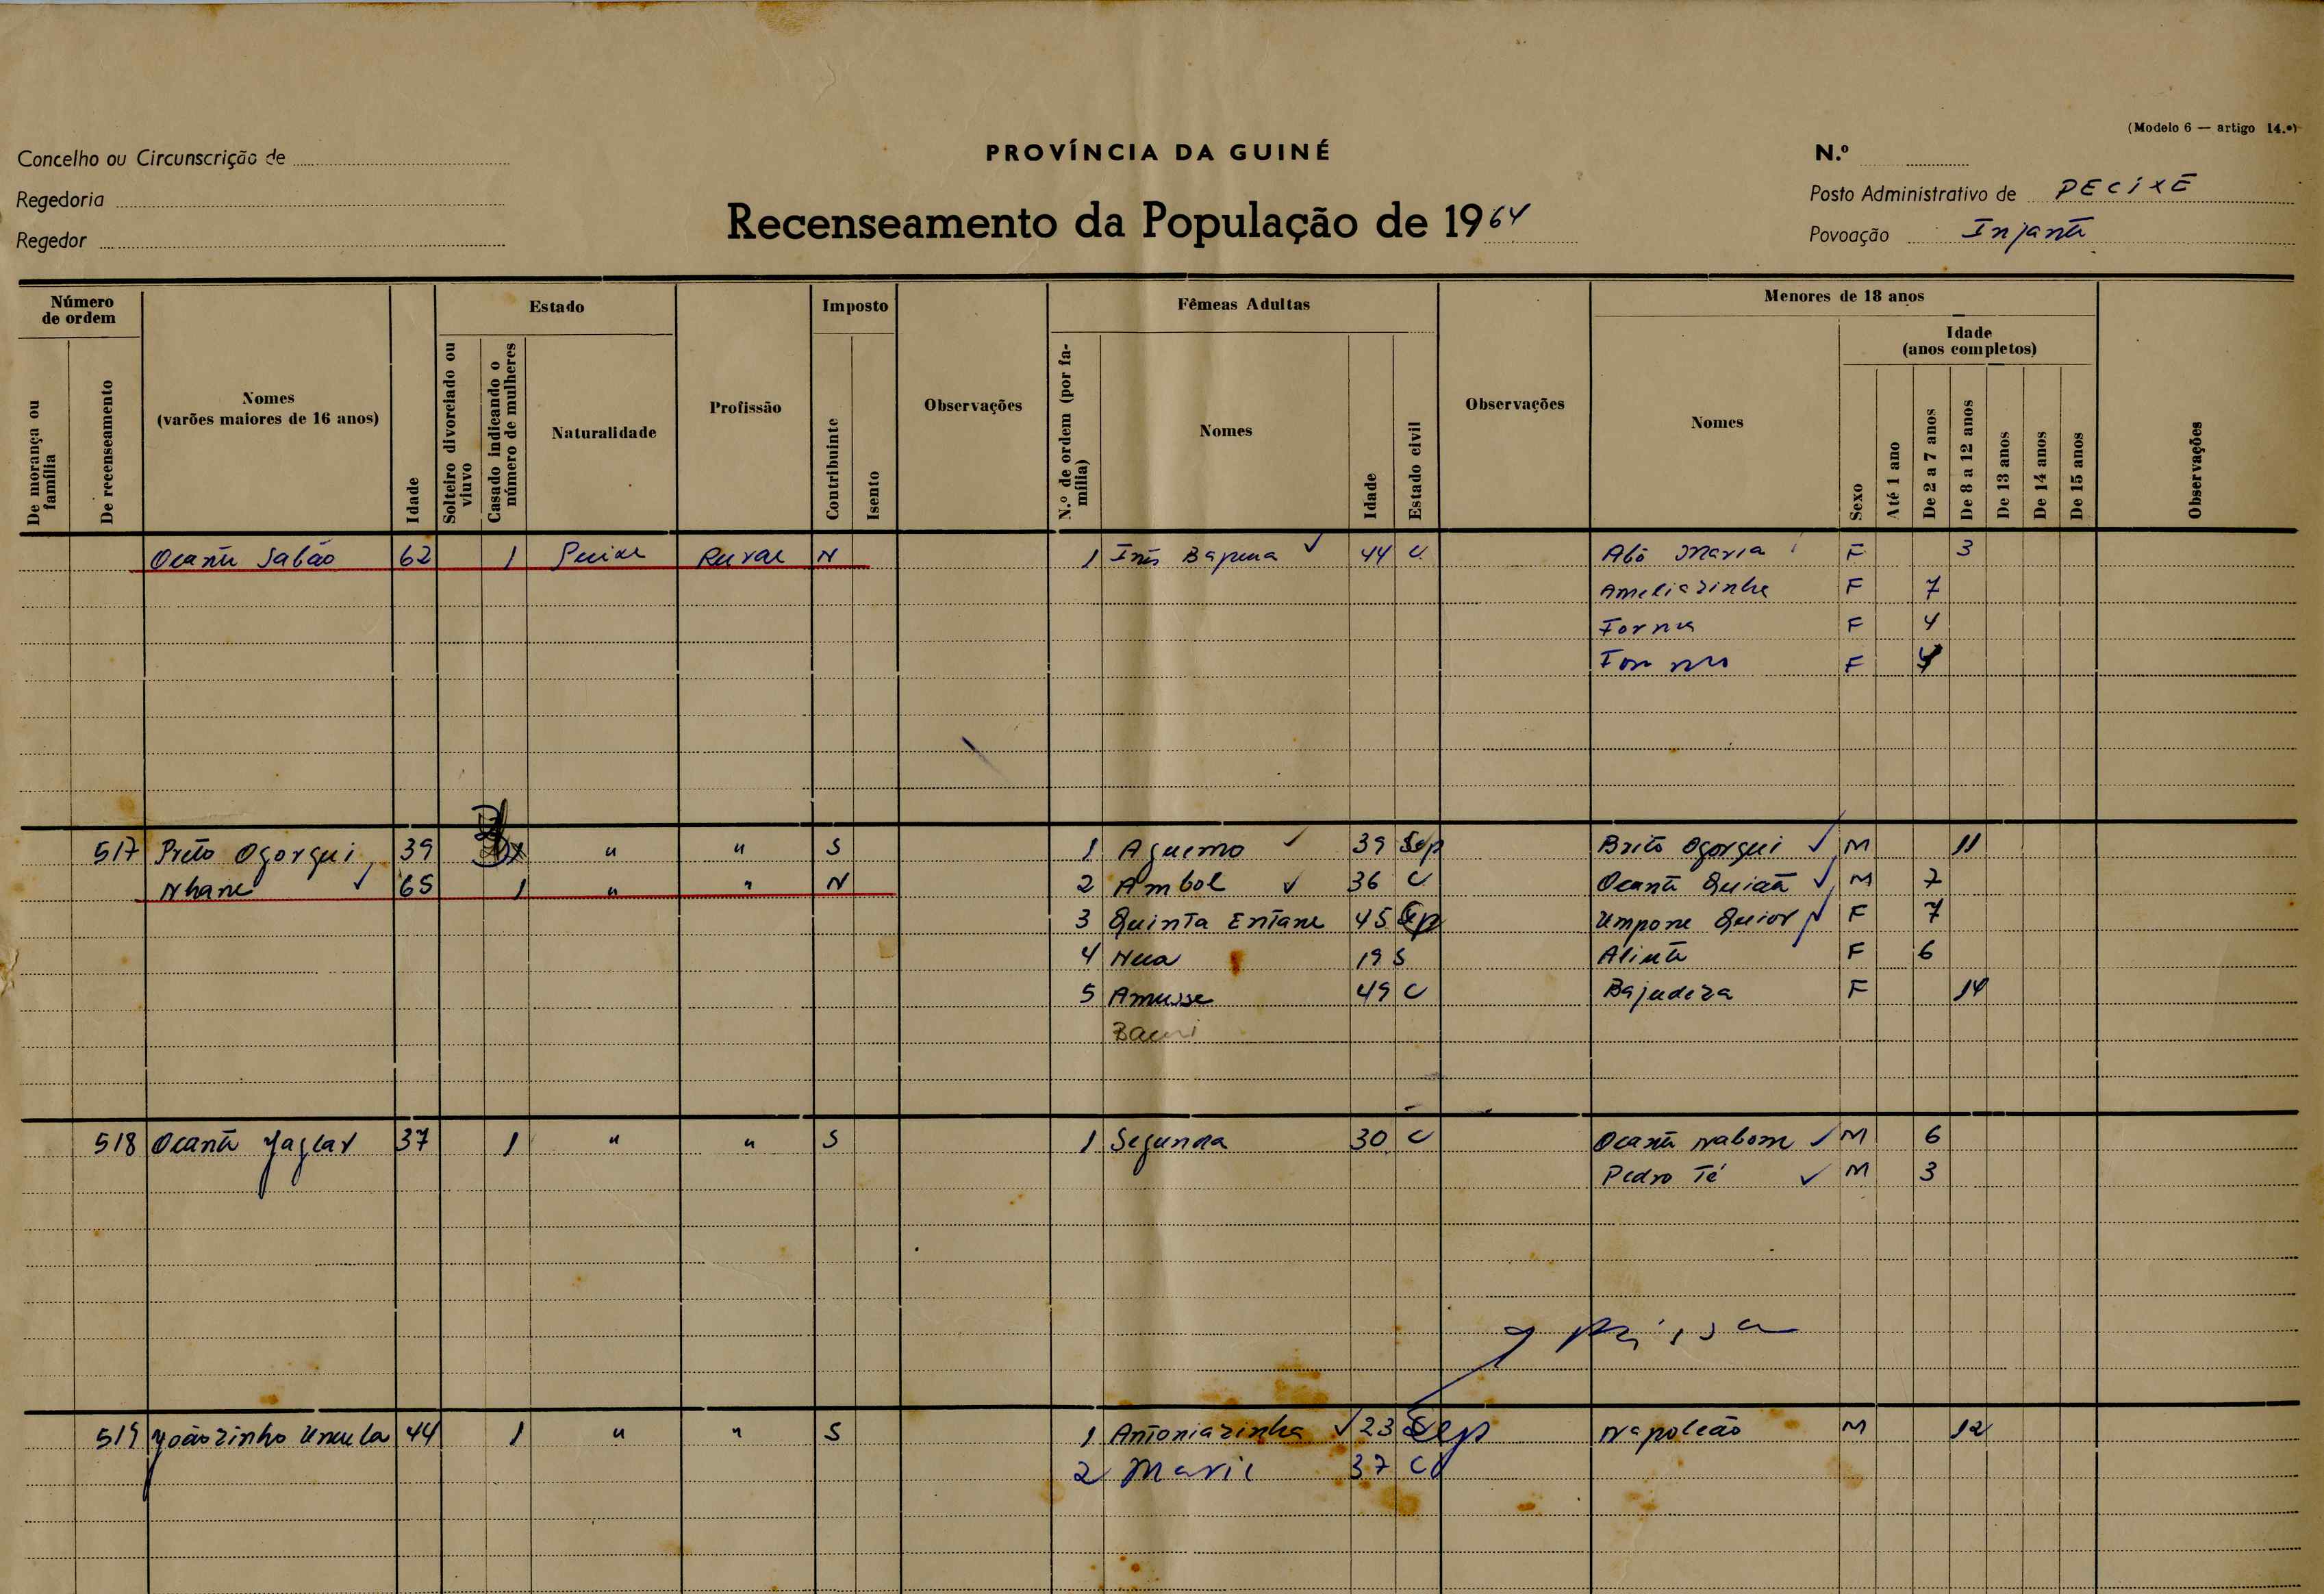 (Modelo 6 — artigo 14.º)
Concelho ou Circunscrição de
PROVÍNCIA DA GUINÉ
N.º
Regedoria
Posto Administrativo de PECIXE
Recenseamento da População de 1964
Regedor
Povoação Injantã
Número de ordem
Estado
Imposto
Fêmeas Adultas
Menores de 18 anos
De morança ou família
De recenseamento
Nomes (varões maiores de 16 anos)
Idade
Solteiro divorciado ou viuvo
Casado indicando o número de mulheres
Naturalidade
Profissão
Contribuinte
Isento
Observações
N.º de ordem (por família)
Nomes
Idade
Estado civil
Observações
Nomes
Sexo
Idade (anos completos)
Até 1 ano
De 2 a 7 anos
De 8 a 12 anos
De 13 anos
De 14 anos
De 15 anos
Observações
Ocantu Sabão 62 1 Pecixe Rural N 1 Inês 44 C Abó Maria F 3
Ameliazinha F 7
Forna F 4
F 4
517 Preto Ogorgui 39 " " S 1 Aguemo 39 Sep Brito Ogorgui M 11
Nhane 65 1 " " N 2 Ambol 36 C Ocantu M 7
3 Quinta Entane 45 Sep Umpone Quior F 7
4 Nua 19 S Aliutu F 6
5 Amusse 49 C Bajudeza F 14
518 Ocantu Jaglar 37 1 " " S 1 Segunda 30 C Ocantu Nabom M 6
Pedro Té M 3
519 Joãozinho 44 1 " " S 1 Antoniazinha 23 Sep Napoleão M 12
2 Marie 37 C